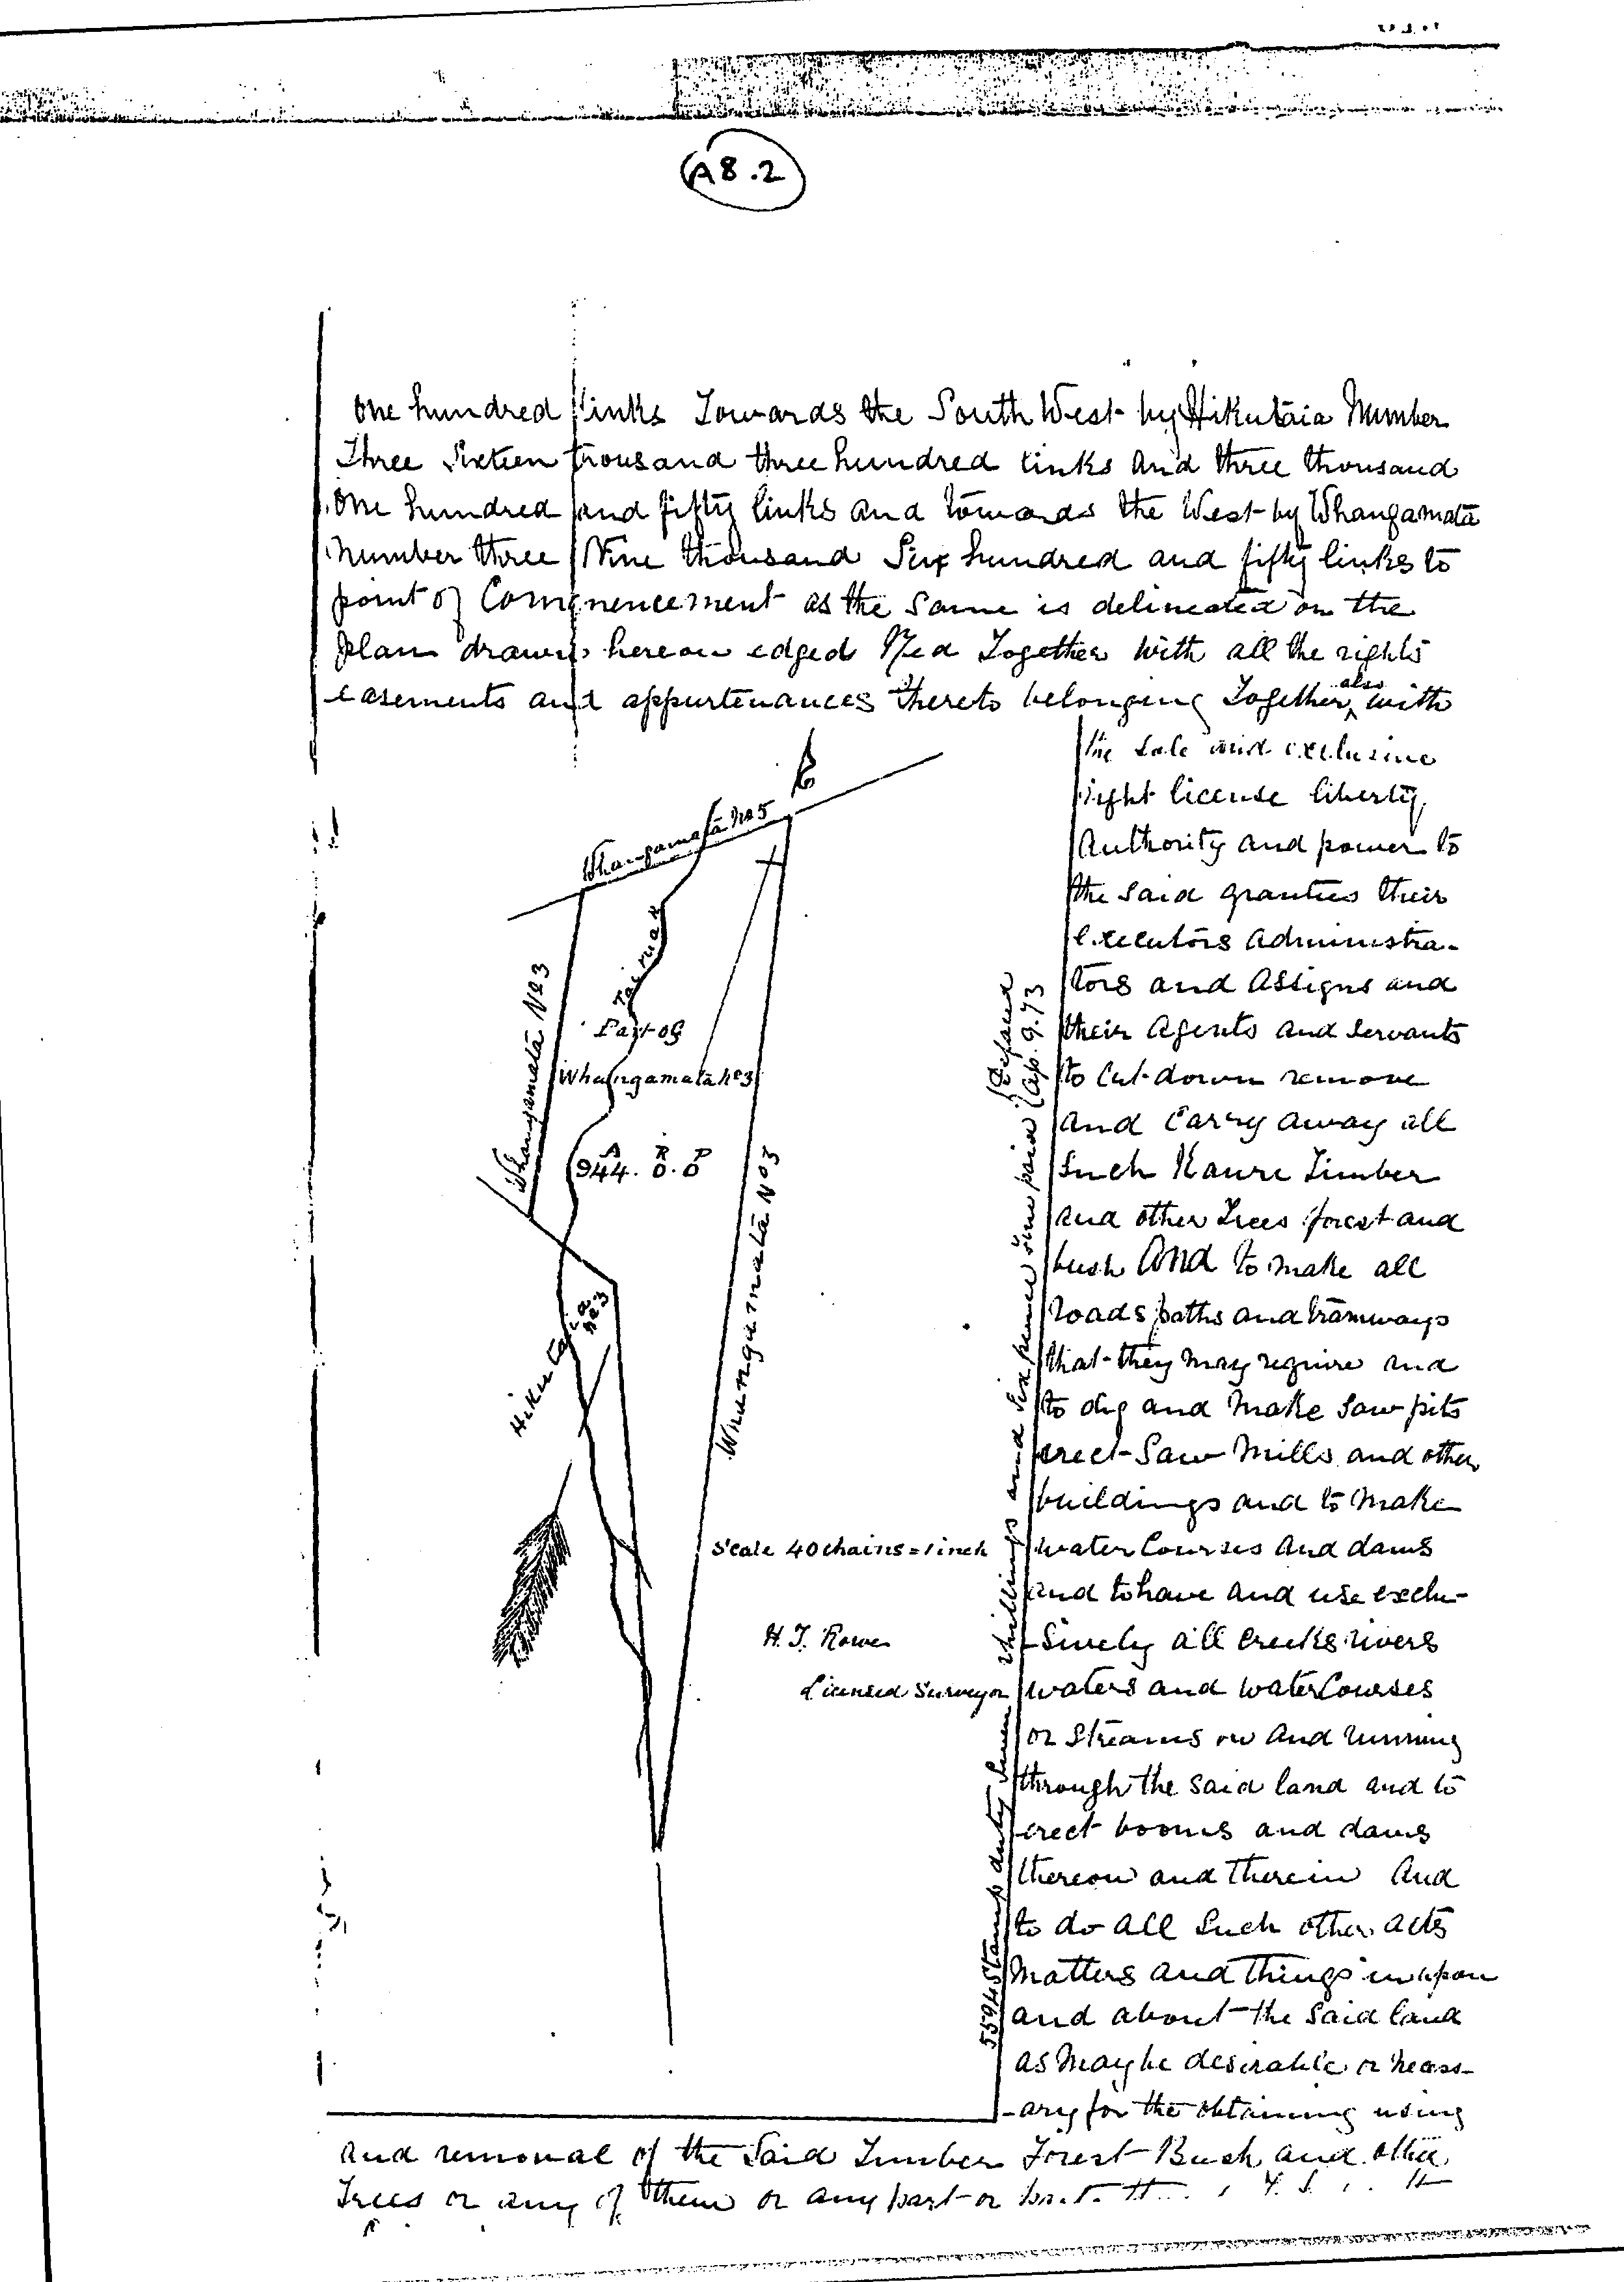 A8.2
one hundred links Towards the South West by Hikutaia Number
Three Sixteen thousand three hundred links and three thousand
one hundred and fifty links and towards the West by Whangamata
number three Nine thousand Six hundred and fifty links to
point of Commencement as the same is delineated on the
plan drawn hereon edged Red Together with all the rights
easements and appurtenances thereto belonging Together also with
the sole and exclusive
right license liberty
Authority and power to
the said grantees their
executors administra-
tors and assigns and
their Agents and Servants
to cut down remove
and carry away all
such Kauri Timber
and other Trees forest and
bush And to make all
roads paths and tramways
that they may require and
to dig and make saw pits
erect Saw Mills and other
buildings and to make
water Courses and dams
and to have and use exclu-
-sively all creeks rivers
waters and water Courses
or streams on and running
through the said land and to
erect booms and dams
thereon and therein And
to do all such other acts
matters and things in upon
and about the said land
as may be desirable or necess-
-ary for the obtaining using
and removal of the said Timber Forest Bush and other
Trees or any of them or any part or
Whangamata No5
Whangamata No3
Part of
Whangamata No3
A R P
944. 0. 0
Whangamata No3
Hikutaia No3
Scale 40 chains = 1 inch
H. T. Rowe
Licensed Surveyor
5594 Stamp duty Seven shillings and Six pence fine paid